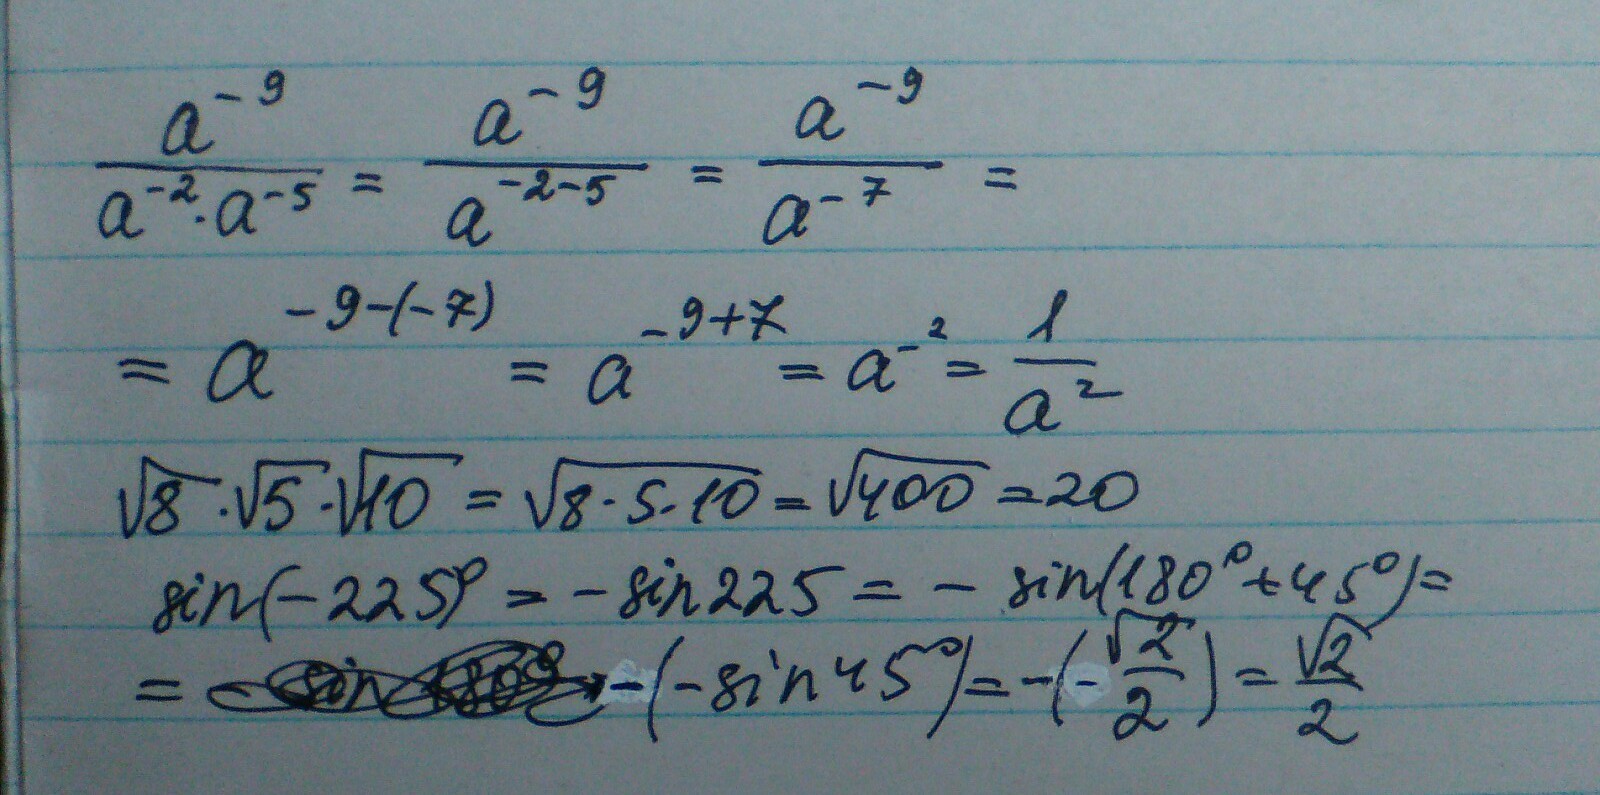 a⁻⁹/(a⁻²·a⁻⁵) = a⁻⁹/a⁻²⁻⁵ = a⁻⁹/a⁻⁷ =
= a⁻⁹⁻⁽⁻⁷⁾ = a⁻⁹⁺⁷ = a⁻² = 1/a²
√8·√5·√10 = √(8·5·10) = √400 = 20
sin(-225)° = -sin225 = -sin(180°+45°) =
= -(-sin45°) = -(-√2/2) = √2/2